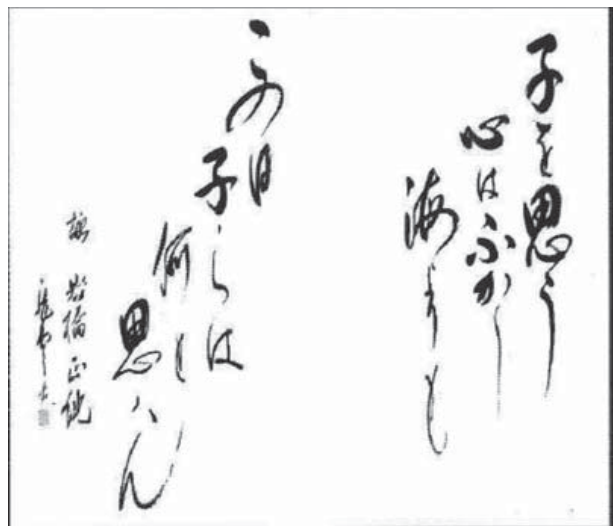 子を思う
心はふかし
海よりも
この日
子らは
何と
思はん
詠 岩橋正純